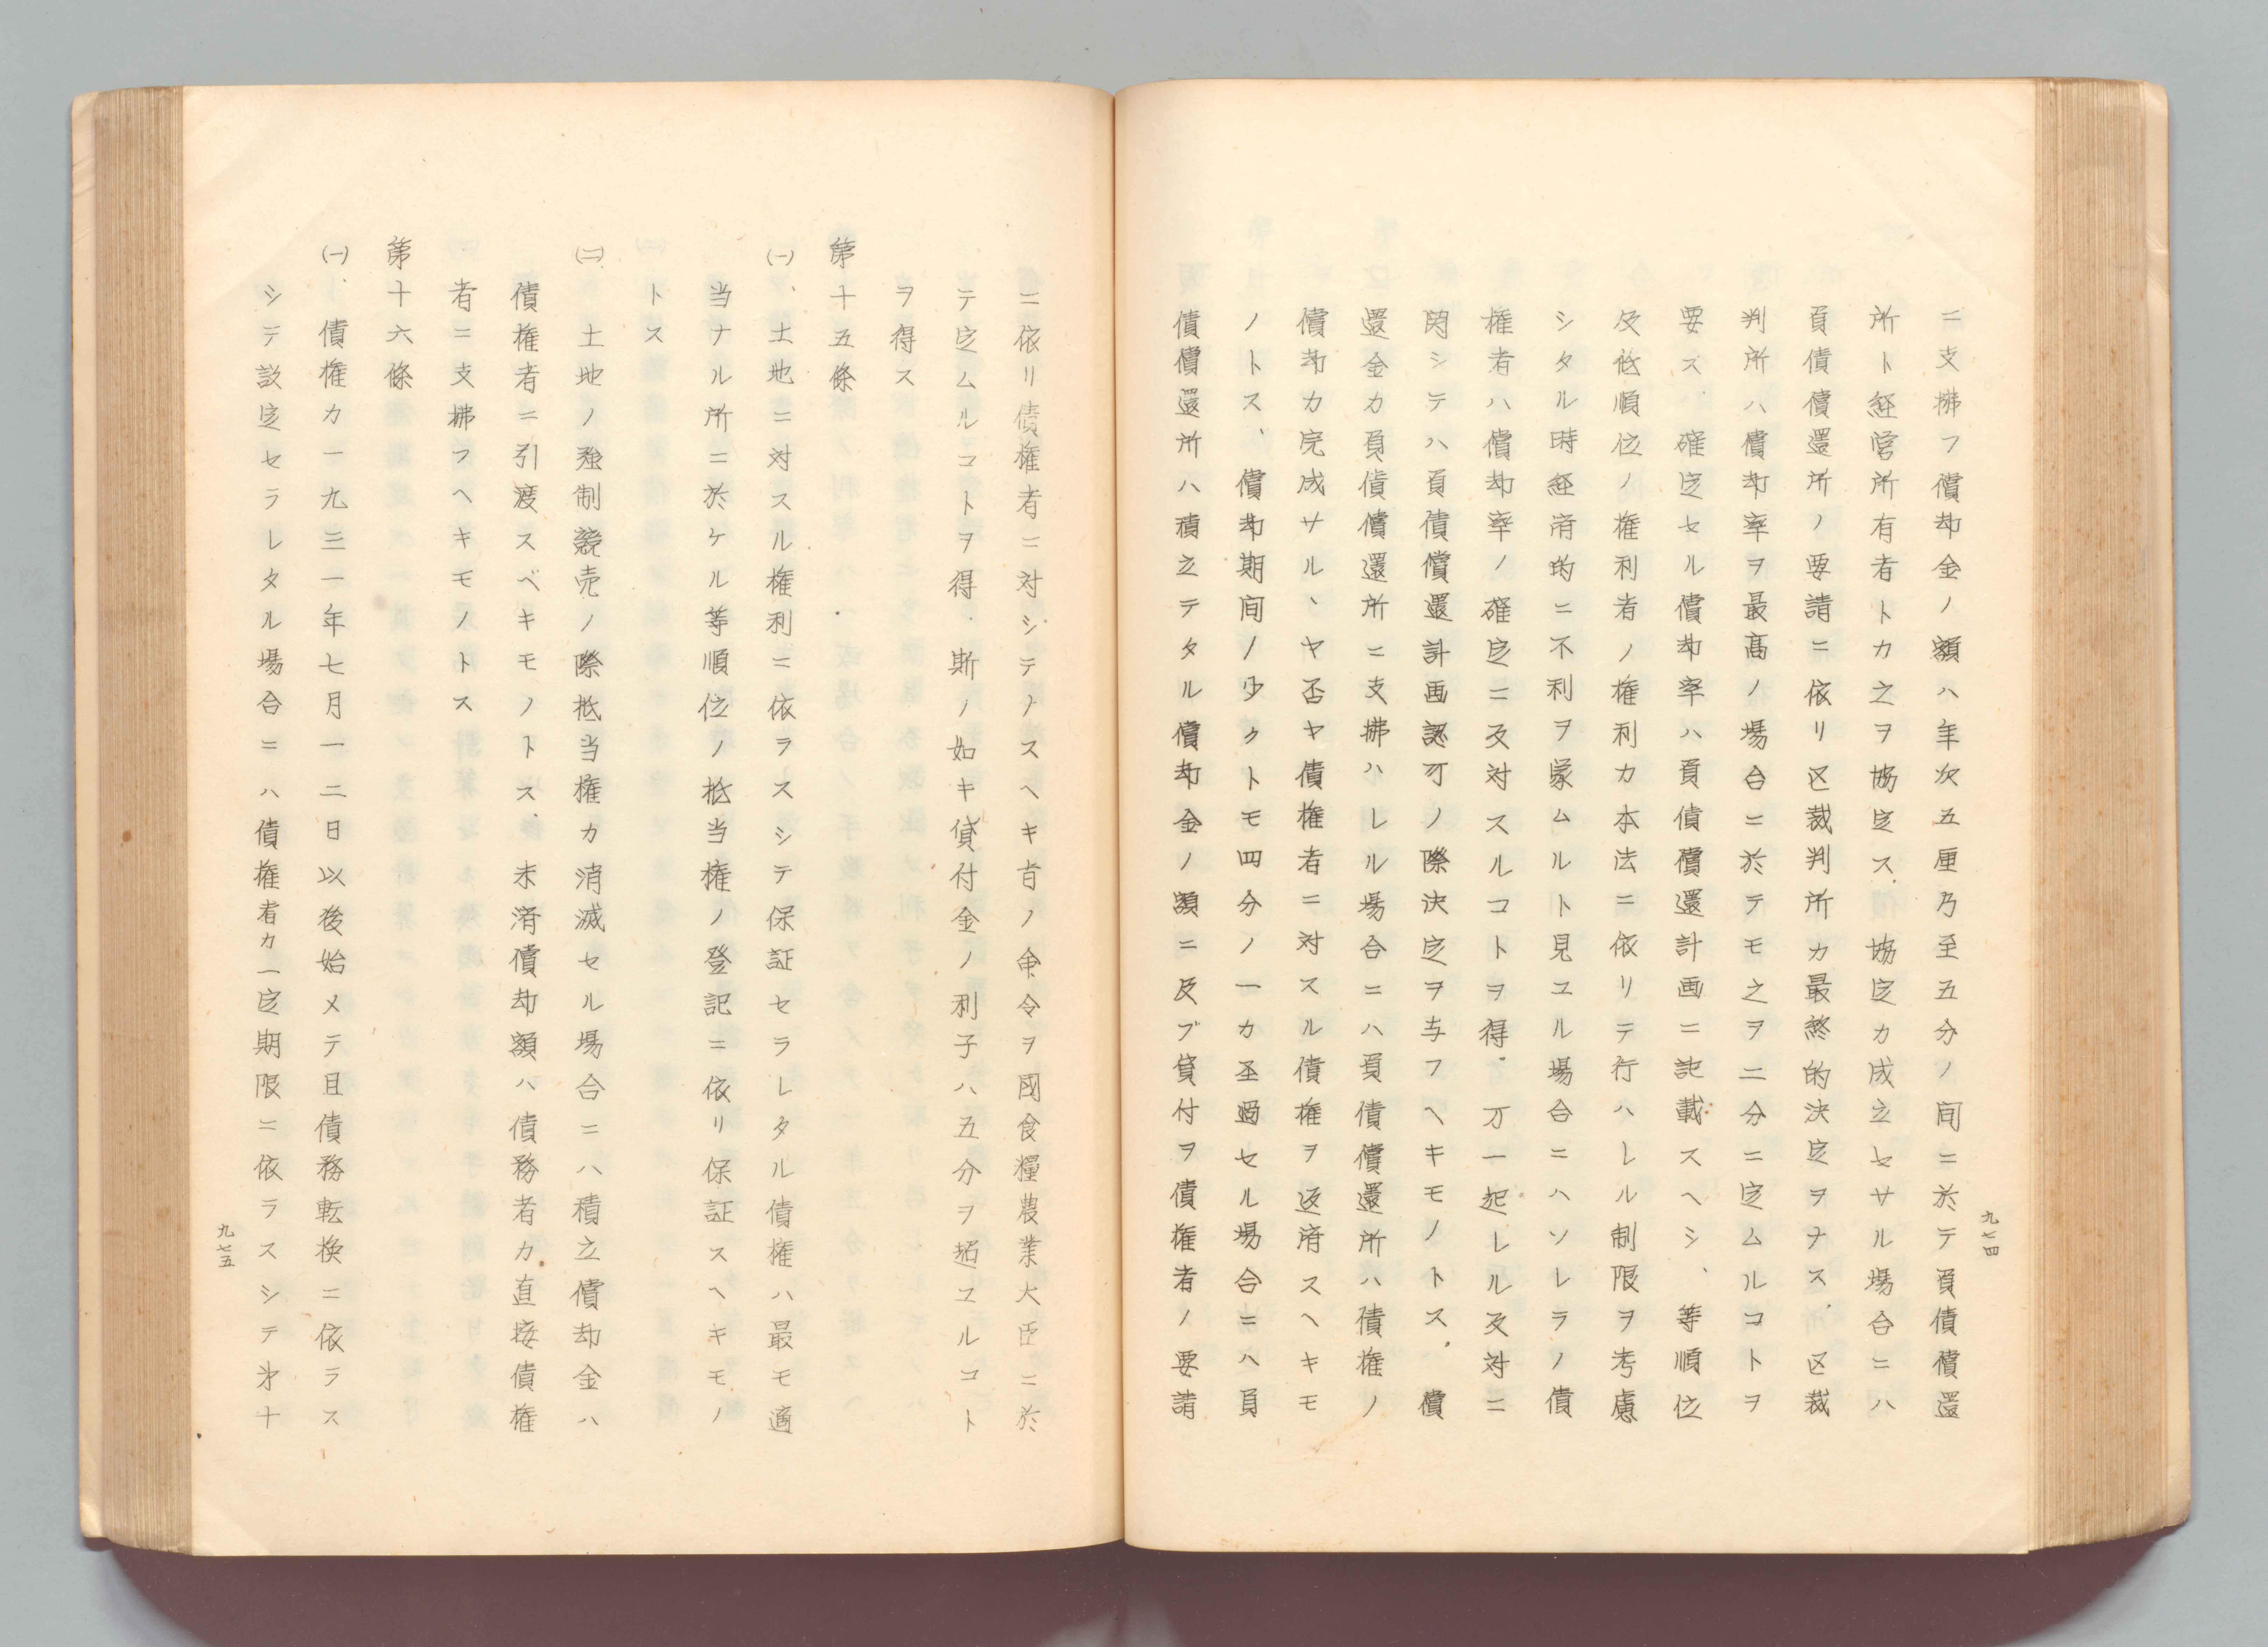 九七四
ニ支拂フ償却金ノ額ハ年次五厘乃至五分ノ間ニ於テ負債償還
所ト経営所有者トカ之ヲ協定ス、協定カ成立セサル場合ニハ
負債償還所ノ要請ニ依リ区裁判所カ最終的決定ヲナス、区裁
判所ハ償却率ヲ最高ノ場合ニ於テモ之ヲ二分ニ定ムルコトヲ
要ス、確定セル償却率ハ負債償還計画ニ記載スヘシ、等順位
及低順位ノ権利者ノ権利カ本法ニ依リテ行ハレル制限ヲ考慮
シタル時経済的ニ不利ヲ蒙ムルト見ユル場合ニハソレラノ債
権者ハ償却率ノ確定ニ反対スルコトヲ得、万一起レル反対ニ
関シテハ負債償還計画認可ノ際決定ヲ与フヘキモノトス、償
還金カ負債償還所ニ支拂ハレル場合ニハ負債償還所ハ債権ノ
償却カ完成サル、ヤ否ヤ債権者ニ対スル債権ヲ返済スヘキモ
ノトス、償却期間ノ少クトモ四分ノ一カ圣過セル場合ニハ負
債償還所ハ積立テタル償却金ノ額ニ及ブ貸付ヲ債権者ノ要請
ニ依リ債権者ニ対シテノスヘキ旨ノ命令ヲ國食糧農業大臣ニ於
テ定ムルコトヲ得、斯ノ如キ貸付金ノ利子ハ五分ヲ超ユルコト
ヲ得ス
第十五條
㈠、土地ニ対スル権利ニ依ラスシテ保証セラレタル債権ハ最モ適
当ナル所ニ於ケル等順位ノ抵当権ノ登記ニ依リ保証スヘキモノ
トス
㈡　土地ノ強制競売ノ際抵当権カ消滅セル場合ニハ積立償却金ハ
債権者ニ引渡スベキモノトス、未済償却額ハ債務者カ直接債権
者ニ支拂フヘキモノトス
第十六條
㈠、債権カ一九三一年七月一二日以後始メテ且債務転換ニ依ラス
シテ設定セラレタル場合ニハ債権者カ一定期限ニ依ラスシテ才十
九七五